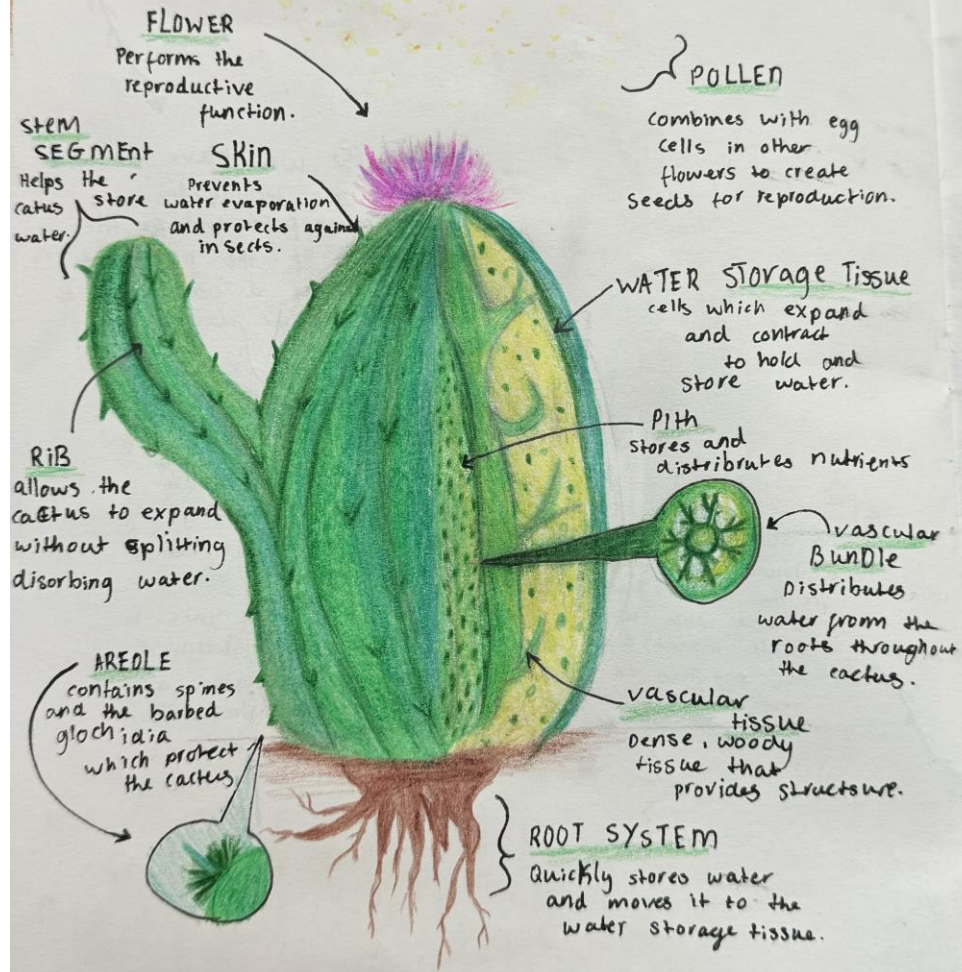 FLOWER
Performs the
reproductive
function.
POLLEN
combines with egg
cells in other
flowers to create
seeds for reproduction.
Stem
SEGMENT
Helps the
catus store
water.
SKIN
Prevents
water evaporation
and protects against
insects.
WATER STORAGE TISSUE
cells which expand
and contract
to hold and
store water.
PITH
Stores and
distribrutes nutrients
RIB
allows the
cactus to expand
without splitting
disorbing water.
vascular
BUNDLE
Distributes
water fromm the
roots throughout
the cactus.
AREOLE
contains spines
and the barbed
glochidia
which protect
the cactus
vascular
tissue
Dense, woody
tissue that
provides structure.
ROOT SYSTEM
Quickly stores water
and moves it to the
water storage tissue.